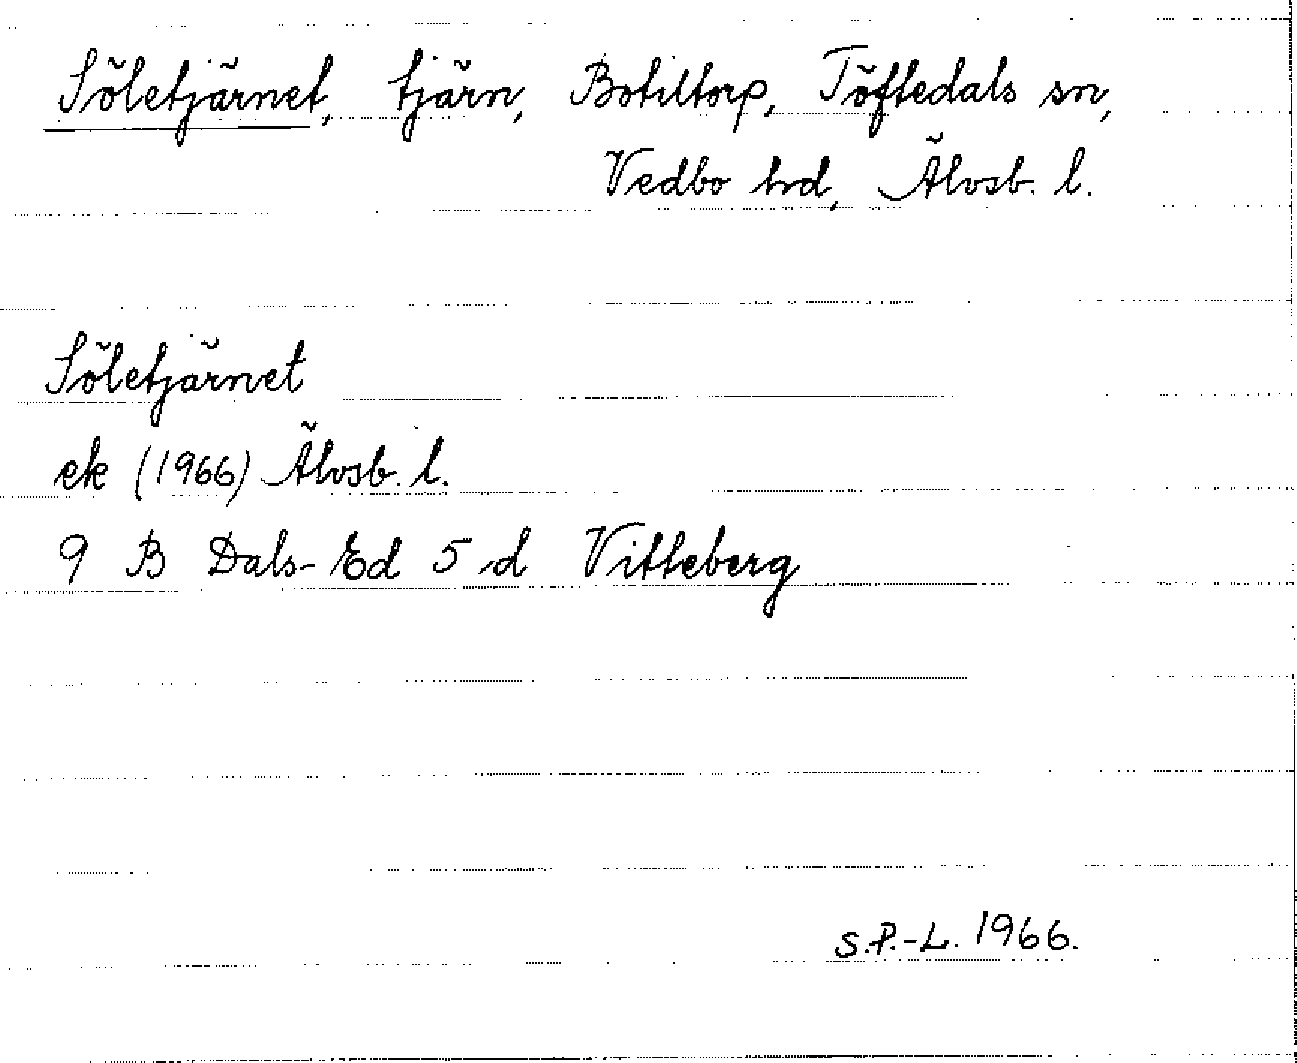 Söletjärnet, tjärn, Botiltorp, Töftedals sn,
Vedbo hd, Älvsb. l.
Söletjärnet
ek (1966) Älvsb. l.
9 B Dals-Ed 5 d Vitteberg
S.P.-L. 1966.